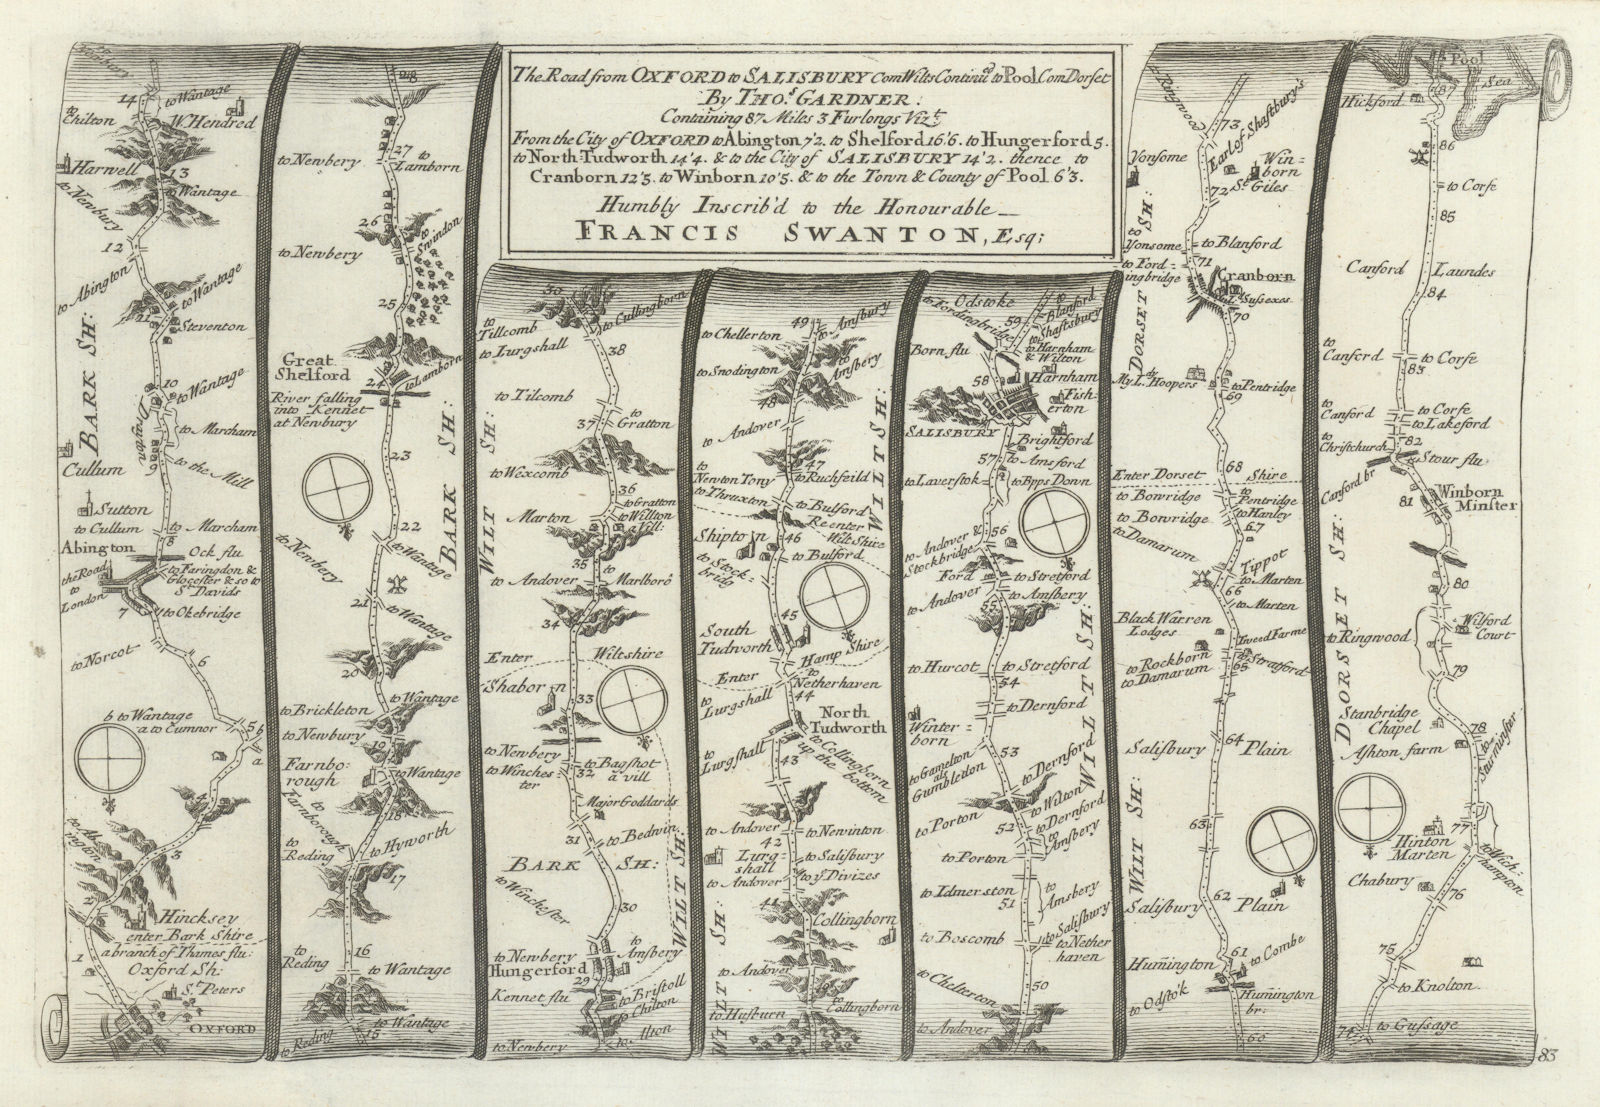 The Road from OXFORD to SALISBURY Com Wilts Continu.d to Pool Com Dorset
By THO.s GARDNER:
Containing 87 Miles 3 Furlongs Viz.t
From the City of OXFORD to Abington 7'2. to Shelford 16'6. to Hungerford 5.
to North-Tudworth 14'4. & to the City of SALISBURY 14'2. thence to
Cranborn 12'5. to Winborn 10'5. & to the Town & County of Pool 6'3.
Humbly Inscrib'd to the Honourable
FRANCIS SWANTON, Esq;
14
to Wantage
to Chilton
W. Hendred
Harwell
13
to Newbury
to Wantage
12
to Abington
to Wantage
BARK SH:
11
Steventon
10
to Wantage
Drayton
to Marcham
9
Cullum
to the Mill
Sutton
to Cullum
to Marcham
8
Abington
Ock flu
the Road to London
to Faringdon &
Glocester & so to
St Davids
7
to Okebridge
to Norcot
6
b to Wantage
a to Cumnor
5
b
a
4
to Abington
3
2
Hincksey
enter Bark Shire
a branch of Thames flu:
1
Oxford Sh:
St. Peters
OXFORD
28
27
to Newbery
to Lamborn
26
to Swindon
to Newbery
25
Great
Shelford
24
to Lamborn
River falling
into Kennet
at Newbury
BARK SH:
23
22
to Newbery
to Wantage
21
to Wantage
20
to Wantage
to Brickleton
to Newbury
19
Farnbo-
rough
to Wantage
to Farnborough
18
to Reding
to Hyworth
17
16
to Reding
to Wantage
to Reding
to Wantage
15
39
to Cullingborn
to Tillcomb
to Lurgshall
38
to Tilcomb
37
to Gratton
WILT SH:
to Wexcomb
36
to Gratton
to Wellton
a Vill:
Marton
35
to Andover
to Marlboro
34
Enter Wiltshire
Shaborn
33
to Newbery
to Winches-
ter
to Bagshot
a vill
32
Major Goddards
31
to Bedwin
BARK SH:
WILT SH:
to Winchester
30
to Newbery
to Amsbery
Hungerford
29
Kennet flu
to Bristoll
to Chilton
to Newbery
to Alton
49
to Chellerton
to Amsbury
to Snodington
to Amsbery
48
to Andover
47
to Ruchfeild
to Newton Tony
to Thruxton
to Bulford
Reenter
Wilt Shire
WILT SH:
Shipton
46
to Bulford
to Stock-
bridg
45
South
Tudworth
Hamp Shire
Enter
to Netherhaven
to Lurgshall
44
North
Tudworth
to Lurgshall
to Collingborn
up the bottom
43
to Andover
to Newinton
42
Lurg-
shall
to Salisbury
to Andover
to ye Divizes
41
Collingborn
to Andover
WILT SH:
to Husburn
Collingborn
to Fordingbridge
Odstoke
59
to Blanford
to Shaftsbury
Born flu
to Harnham
& Wilton
58
Harnham
Fish-
erton
SALISBURY
Brightford
57
to Amsford
to Laverstok
to Bpps Down
56
to Andover &
Stockbridge
Ford
to Stretford
to Andover
to Amsbery
55
to Hurcot
to Stretford
54
to Dernford
WILT SH:
Winter-
born
53
to Gamelton
als
Gumbledon
to Dernford
to Wilton
to Porton
52
to Dernford
to Amsbery
to Porton
to Idmerston
51
to Amsbery
to Boscomb
to Salisbury
to Nether
haven
to Chelterton
50
to Andover
to Ringwood
73
Earl of Shaftsbury's
Yonsome
Win-
born
St Giles
72
DORSET SH:
to Yonsome
to Blanford
to Ford-
ingbridge
71
Cranborn
E. Sussexes
70
My Ldy Hoopers
to Pentridge
69
68
Enter Dorset Shire
to Bowridge
to Pentridge
to Hanley
to Bowridge
67
to Damarum
Tippot
to Marten
66
to Marten
Black Warren
Lodges
Tweed Farme
to Rockborn
to Damarum
65
to Stratford
64
Salisbury Plain
WILT SH:
63
62
Salisbury Plain
61
to Combe
Humington
to Odstok
Humington
br:
60
Pool
Sea
Hickford
87
86
to Corfe
85
Canford
Laundes
84
to Canford
to Corfe
83
to Canford
to Corfe
to Lakeford
to Christchurch
82
Stour flu
Canford br
81
Winborn
Minster
80
DORSET SH:
to Ringwood
Wilford
Court
79
Stanbridge
Chapel
78
Ashton farm
to Sturminster
77
Hinton
Marten
to Wich-
hampton
Chabury
76
75
to Knolton
74
to Gussage
83